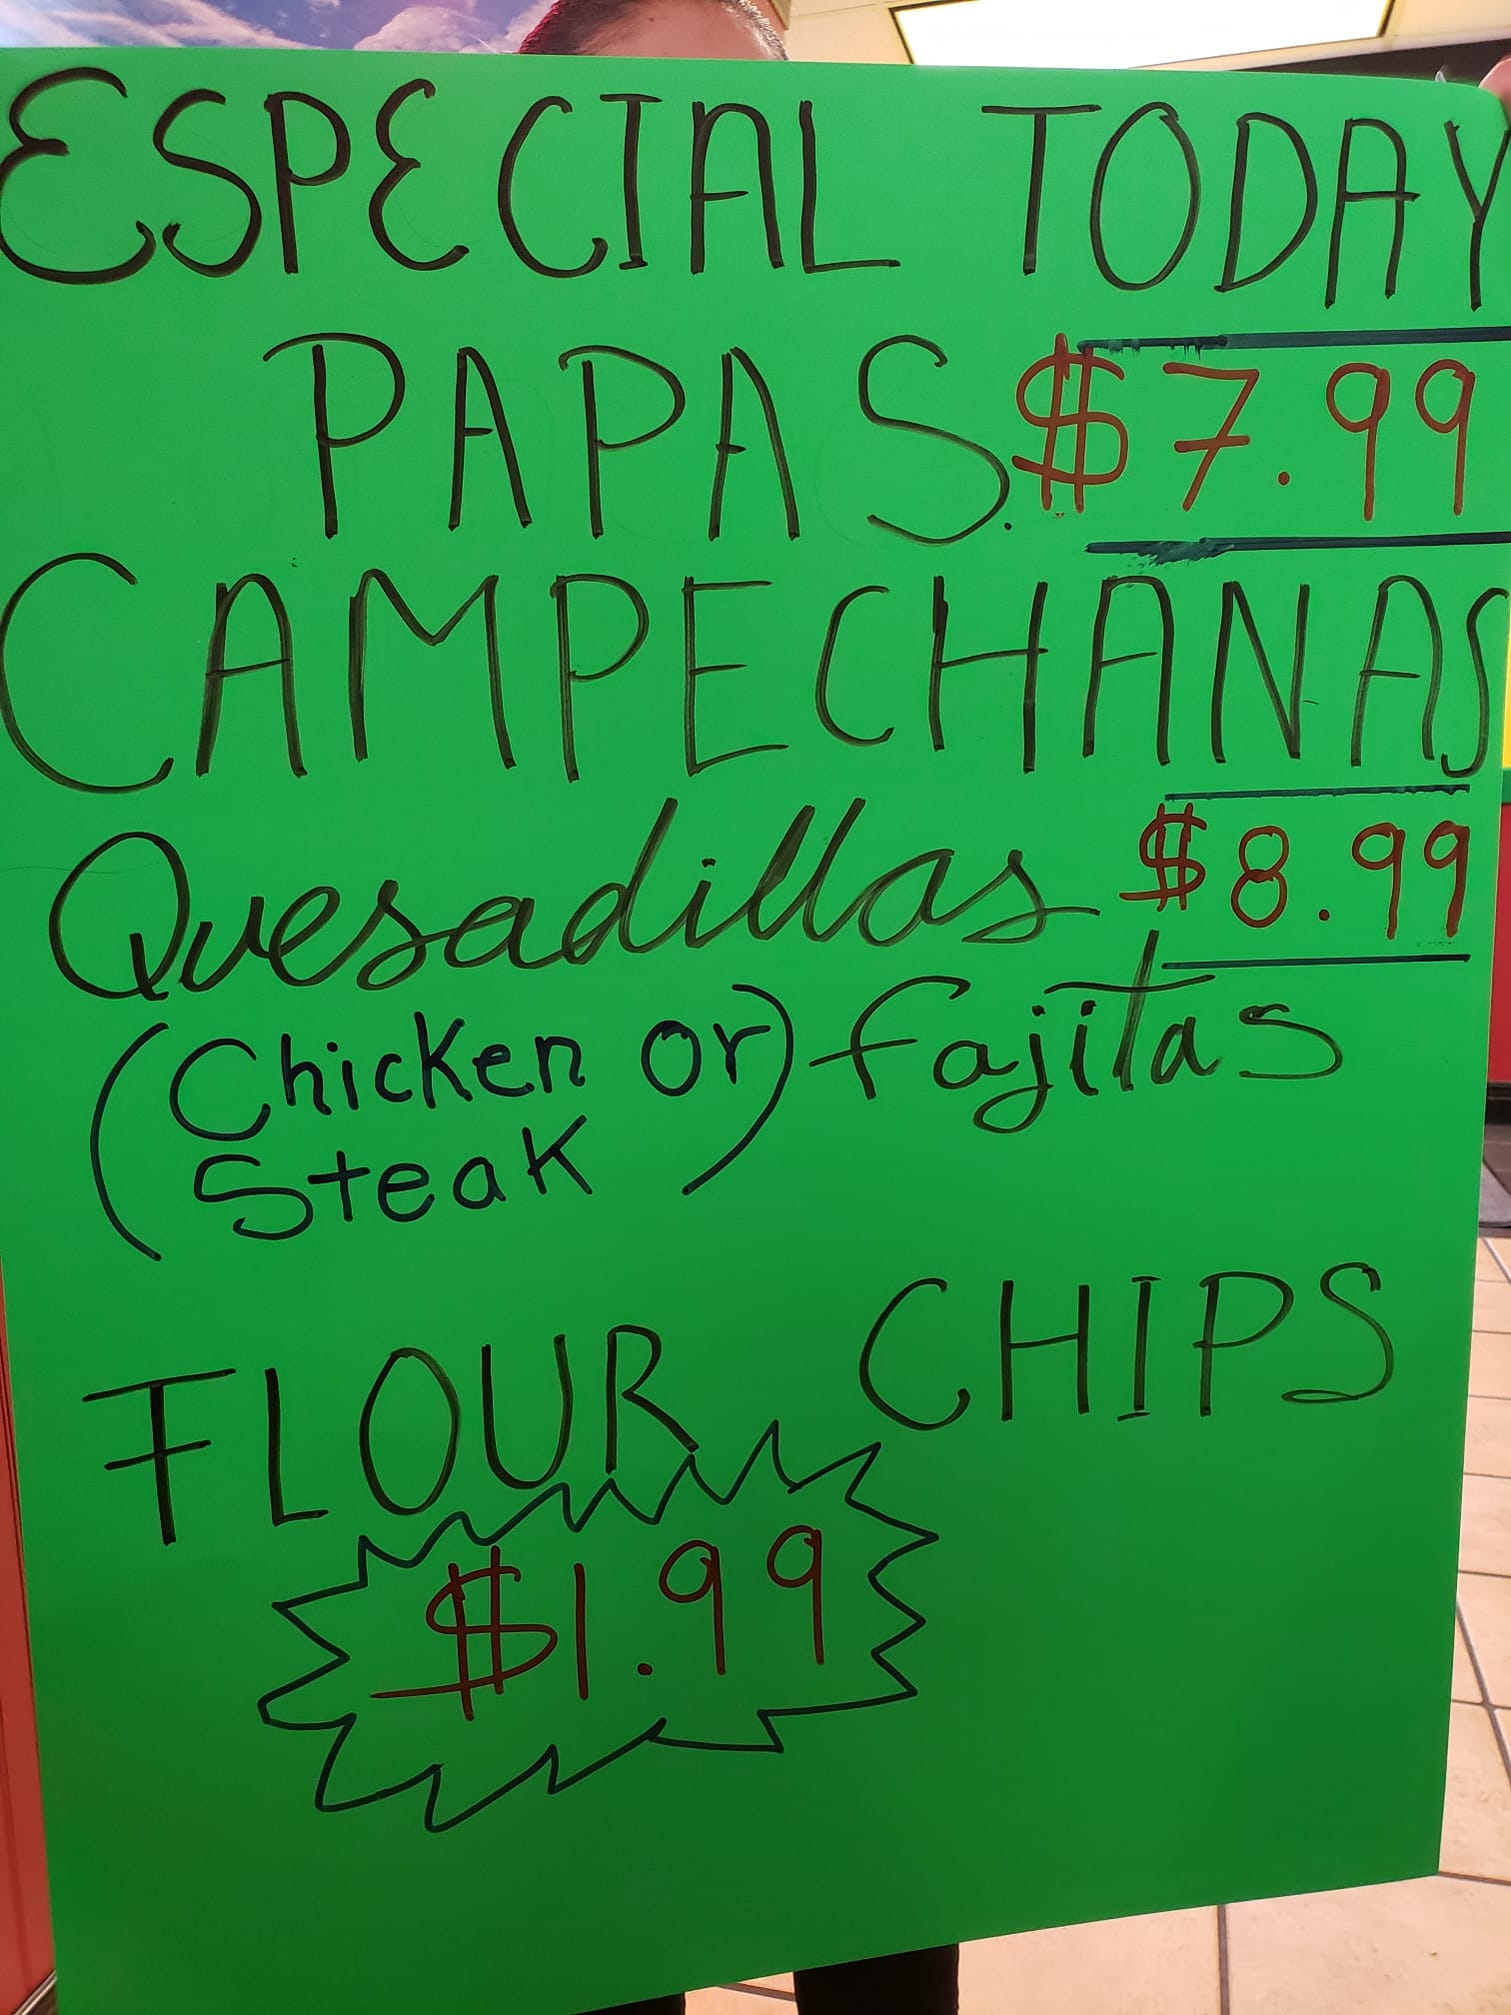 ESPECIAL TODAY
PAPAS. $7.99
CAMPECHANAS
Quesadillas $8.99
(Chicken or) fajitas
Steak
FLOUR CHIPS
$1.99